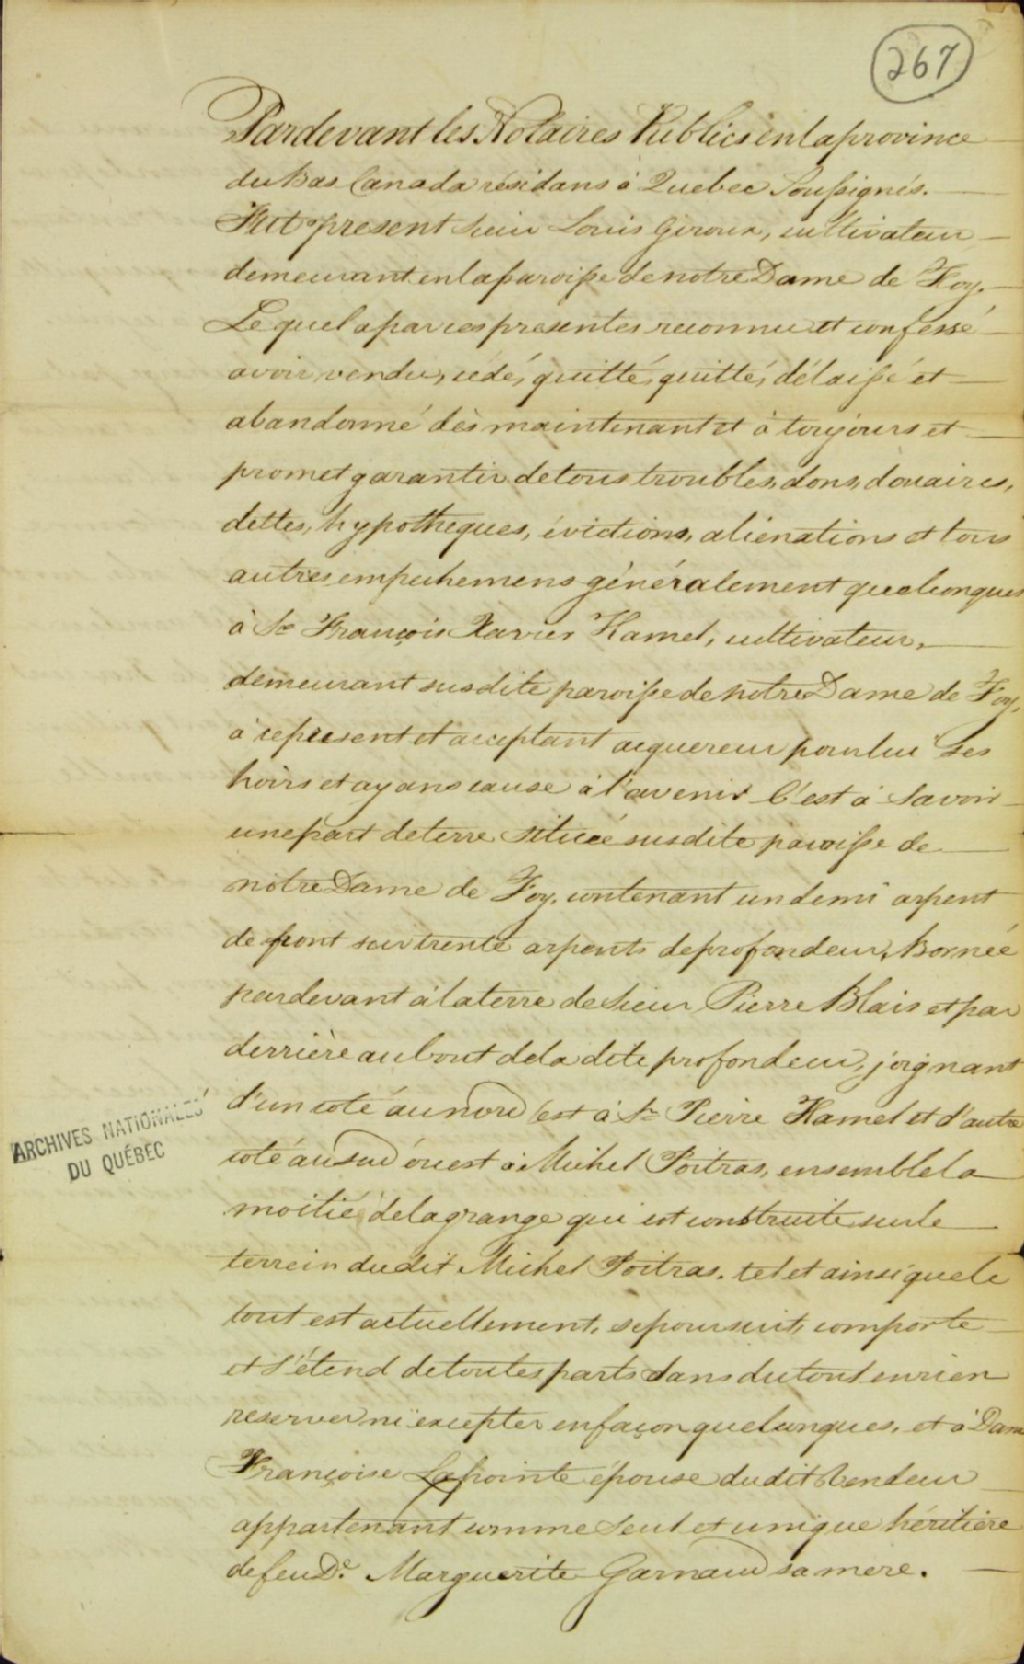 267
Pardevant les Notaires Publics en la province
du Bas Canada résidans à Quebec Soussignés.
Fut present Sieur Louis Giroux, cultivateur
demeurant en la paroisse de notre Dame de Foy.
Le quel a par ces presentes reconnu et confessé
avoir vendu, cédé, quitté, quitté, délaissé et
abandonné dès maintenant et à toujours et
promet garantir de tous troubles, dons, douaires,
dettes, hypotheques, évictions, alienations et tous
autres empechemens généralement quelconques
à Sr François Xavier Hamel, cultivateur,
demeurant susdite paroisse de notre Dame de Foy,
à ce present et acceptant acquereur pour lui Ses
hoirs et ayans cause à l'avenir C'est à Savoir
une part de terre située susdite paroisse de
notre Dame de Foy, contenant un demi arpent
de front sur trente arpents de profondeur, Bornée
pardevant à la terre de Sieur Pierre Blais et par
derrière au bout de la dite profondeur, joignant
d'un coté au nord est à Sr Pierre Hamel et d'autre
coté au sud ouest à Michel Poitras, ensemble la
moitié de la grange qui est construite sur le
terrein du dit Michel Poitras. tel et ainsi que le
tout est actuellement, se poursuit, comporte
et s'étend de toutes parts sans du tout en rien
reserver ni excepter en façon quelconques, et à Dame
Françoise Lapointe épouse du dit Vendeur
appartenant comme Seul et unique héritière
de feu De. Marguerite Garnaud sa mere.
ARCHIVES NATIONALES
DU QUÉBEC